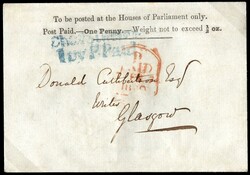 To be posted at the Houses of Parliament only.
Post Paid.—One Penny.—Weight not to exceed ½ oz.
1py P Paid
PAID
Donald Cuthbertson Esqr
Writer
Glasgow